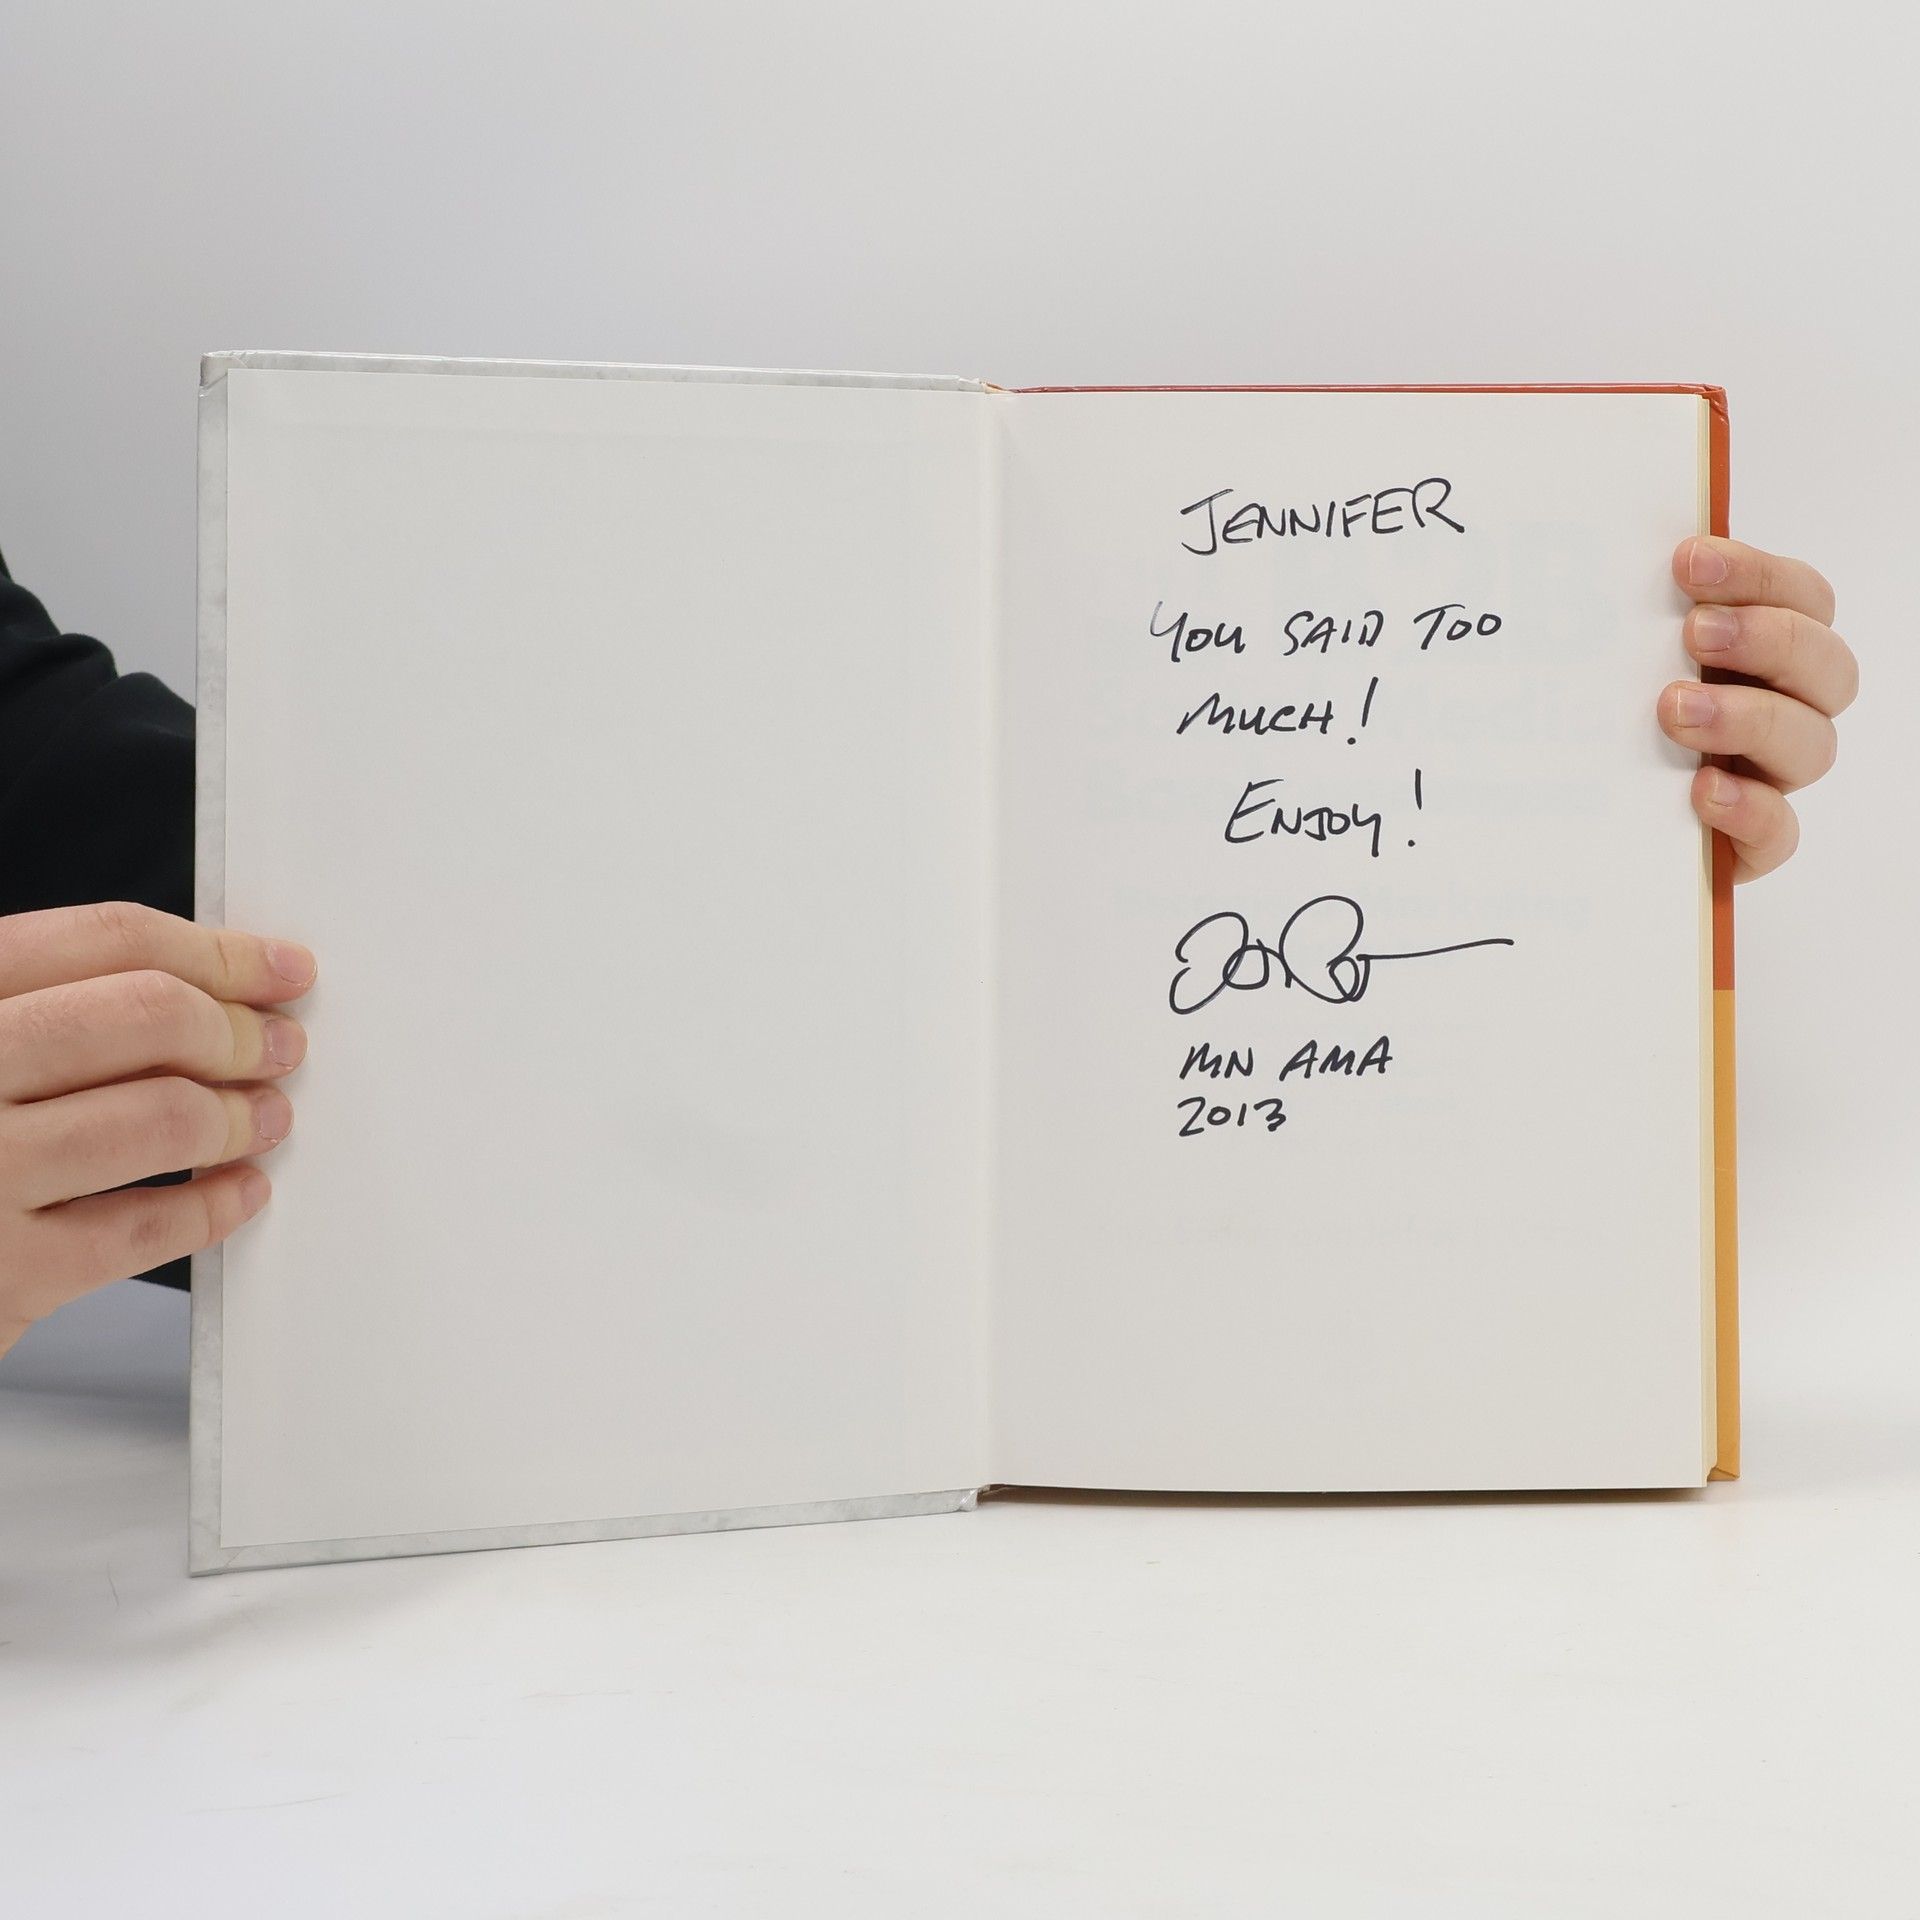 JENNIFER
YOU SAID TOO
MUCH!
ENJOY!
MN AMA
2013